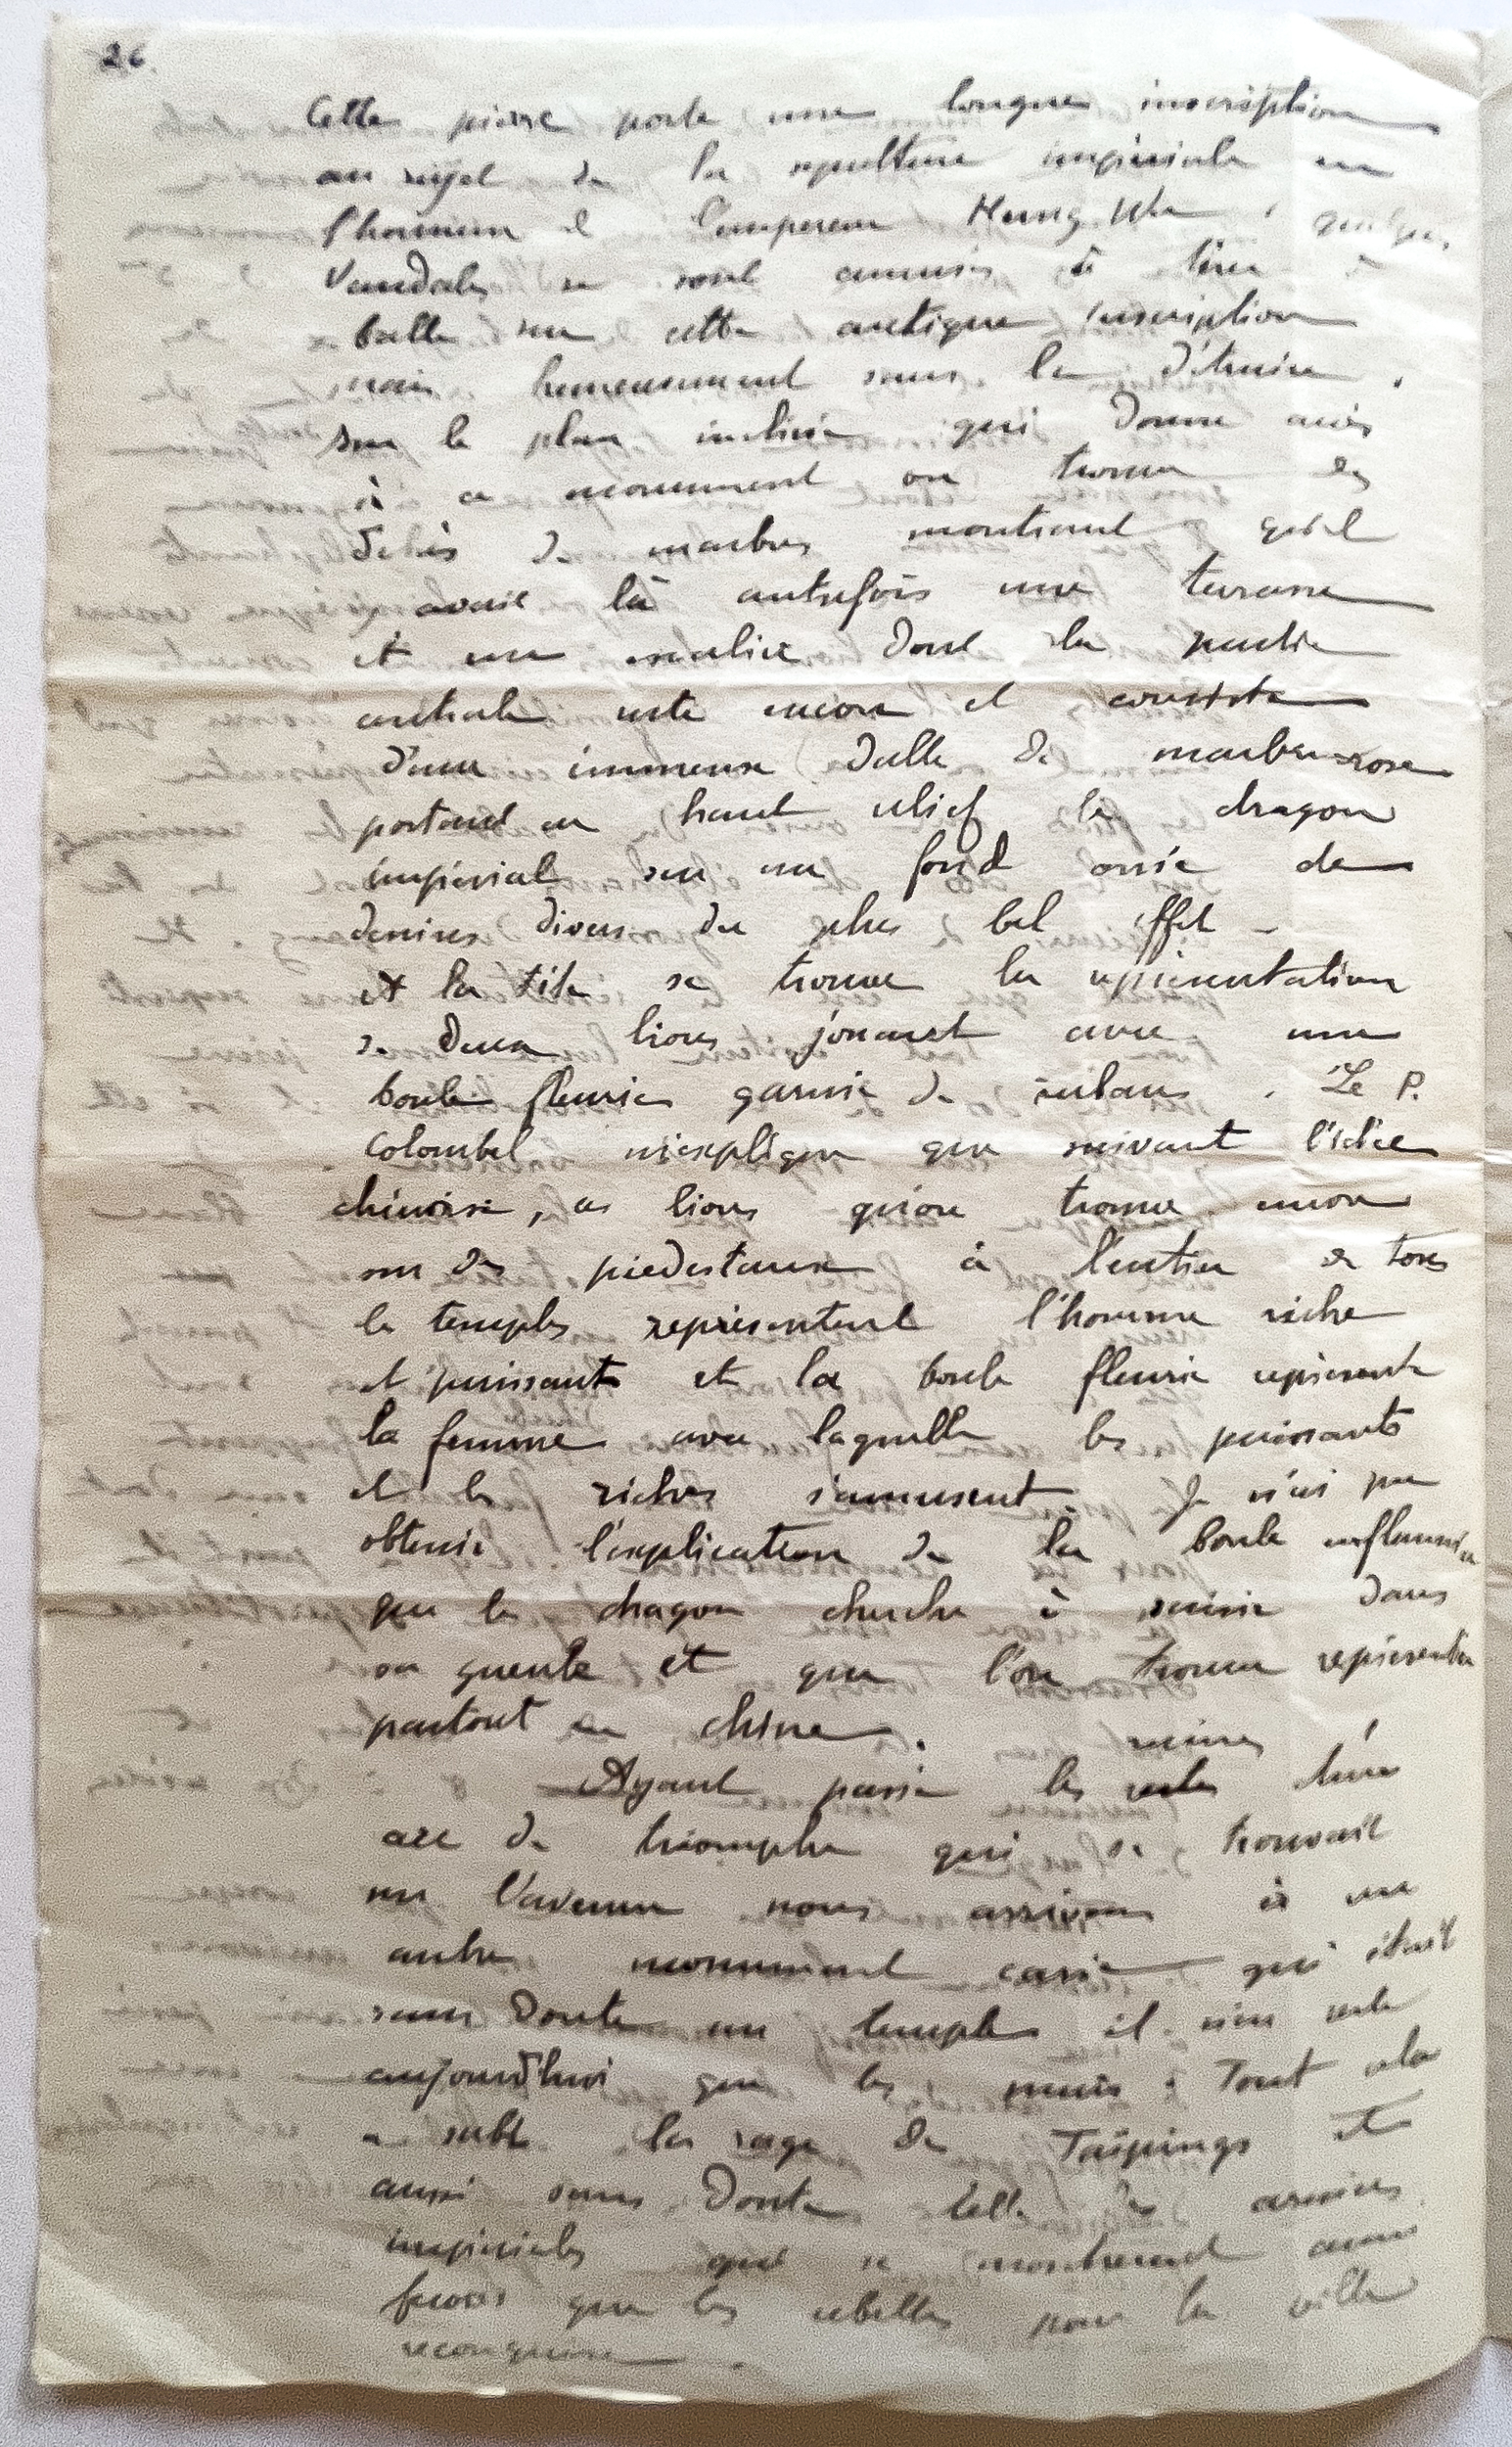 26.
Cette pierre porte une longue inscription
au sujet de la sepulture impériale en
l'honneur de l'empereur Hung Wu, quelques
Vandales se sont amusés à tirer à
balle sur cette antique inscription
mais heureusement sans la détruire.
Sur le plan incliné qui donne accès
à ce monument on trouve des
débris de marbres montrant qu'il
y avait là autrefois une terrasse
et un escalier dont la partie
centrale reste encore et consiste
d'une immense dalle de marbre rose
portant en haut relief le dragon
impérial sur un fond orné de
dessins divers du plus bel effet -
et la tête se trouve la représentation
de deux lions jouant avec une
boule fleurie garnie de rubans. Le P.
Colombel m'explique que suivant l'idée
chinoise, ces lions qu'on trouve encore
sur des piedestaux à l'entrée de tous
les temples représentent l'homme riche
et puissant et la boule fleurie représente
la femme avec laquelle les puissants
et les riches s'amusent. Je n'ai pu
obtenir l'explication de la boule enflammée
que le dragon cherche à saisir dans
sa gueule et que l'on trouve représentée
partout en chine.
ruinés
Ayant passé les restes d'un
arc de triomphe qui se trouvait
sur l'avenue nous arrivons à un
autre monument carré qui était
sans doute un temple il n'en reste
aujourd'hui que les murs. Tout cela
a subi la rage des Taïpings et
aussi sans doute celle des armées
impériales qui se montrèrent aussi
féroces que les rebelles pour la ville
reconquise.